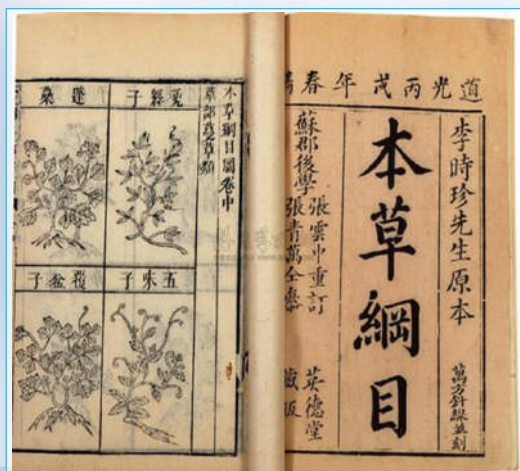 道光丙戌年春
李時珍先生原本
萬方針線並刻
本草綱目
蘇郡後學
張雲中重訂
張青萬仝參
英德堂
藏版
本草綱目圖卷中
草部蔓草類
菟絲子
五味子
蓬蘽
覆盆子